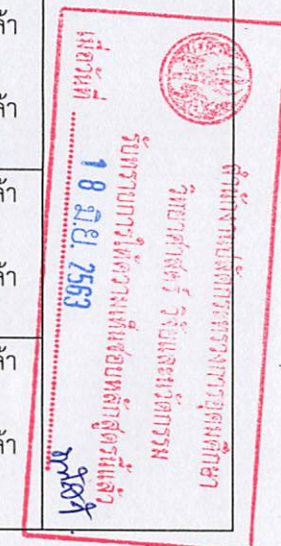 ล้า
ล้า
ล้า
ล้า
ล้า
ล้า
สำนักงานปลัดกระทรวงการอุดมศึกษา
วิทยาศาสตร์ วิจัยและนวัตกรรม
รับทราบการให้ความเห็นชอบหลักสูตรนี้แล้ว
เมื่อวันที่ 18 มิ.ย. 2563